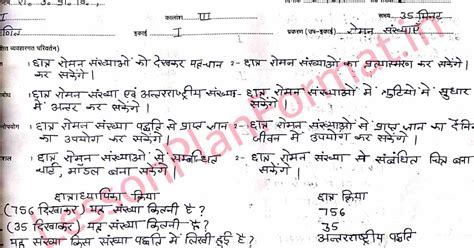 I कालांश III समय 35 मिनट
गणित इकाई I प्रकरण (उप-इकाई) रोमन संख्याएँ
व्यवहारगत परिवर्तन)
छात्र रोमन संख्याओं को देखकर पहचान कर सकेंगे। 2- छात्र रोमन संख्याओं का प्रत्यास्मरण कर सकेंगे।
बोध : छात्र रोमन संख्या एवं अन्तरराष्ट्रीय संख्या में अन्तर कर सकेंगे। 2- छात्र रोमन संख्याओं में त्रुटियों में सुधार कर सकेंगे।
छात्र रोमन संख्या पद्धति से प्राप्त ज्ञान का उपयोग कर सकेंगे। 2- छात्र रोमन संख्याओं से प्राप्त ज्ञान का दैनिक जीवन में उपयोग कर सकेंगे।
छात्र रोमन संख्याओं से सम्बन्धित चार्ट, माडल बना सकेंगे। 2- छात्र रोमन संख्या से संबंधित चित्र बना सकेंगे।
छात्राध्यापिका क्रिया छात्र क्रिया
(756 दिखाकर) यह संख्या कितनी है? 756
(35 दिखाकर) यह संख्या कितनी है? 35
यह संख्या किस संख्या पद्धति में लिखी हुई है? अन्तरराष्ट्रीय पद्धति
LessonPlanFormat.in